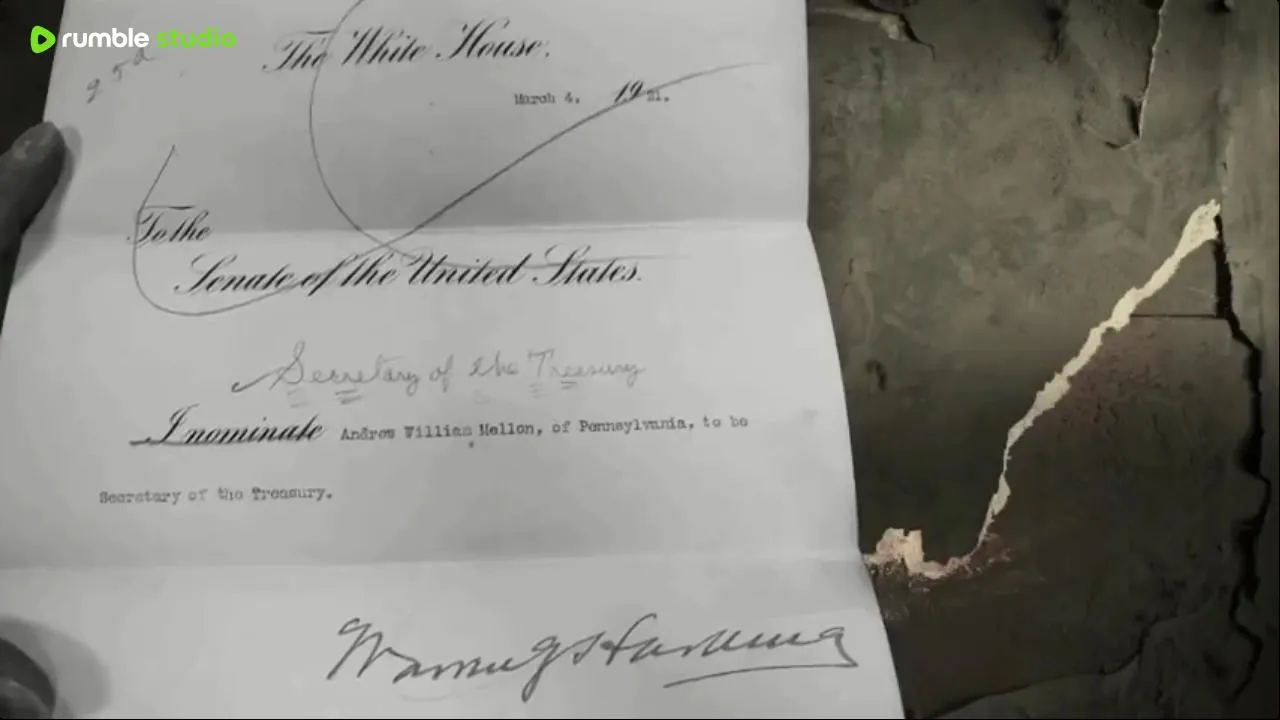 rumble studio
The White House.
March 4, 1921.
To the
Senate of the United States.
Secretary of the Treasury
I nominate Andrew William Mellon, of Pennsylvania, to be
Secretary of the Treasury.
Warren G Harding